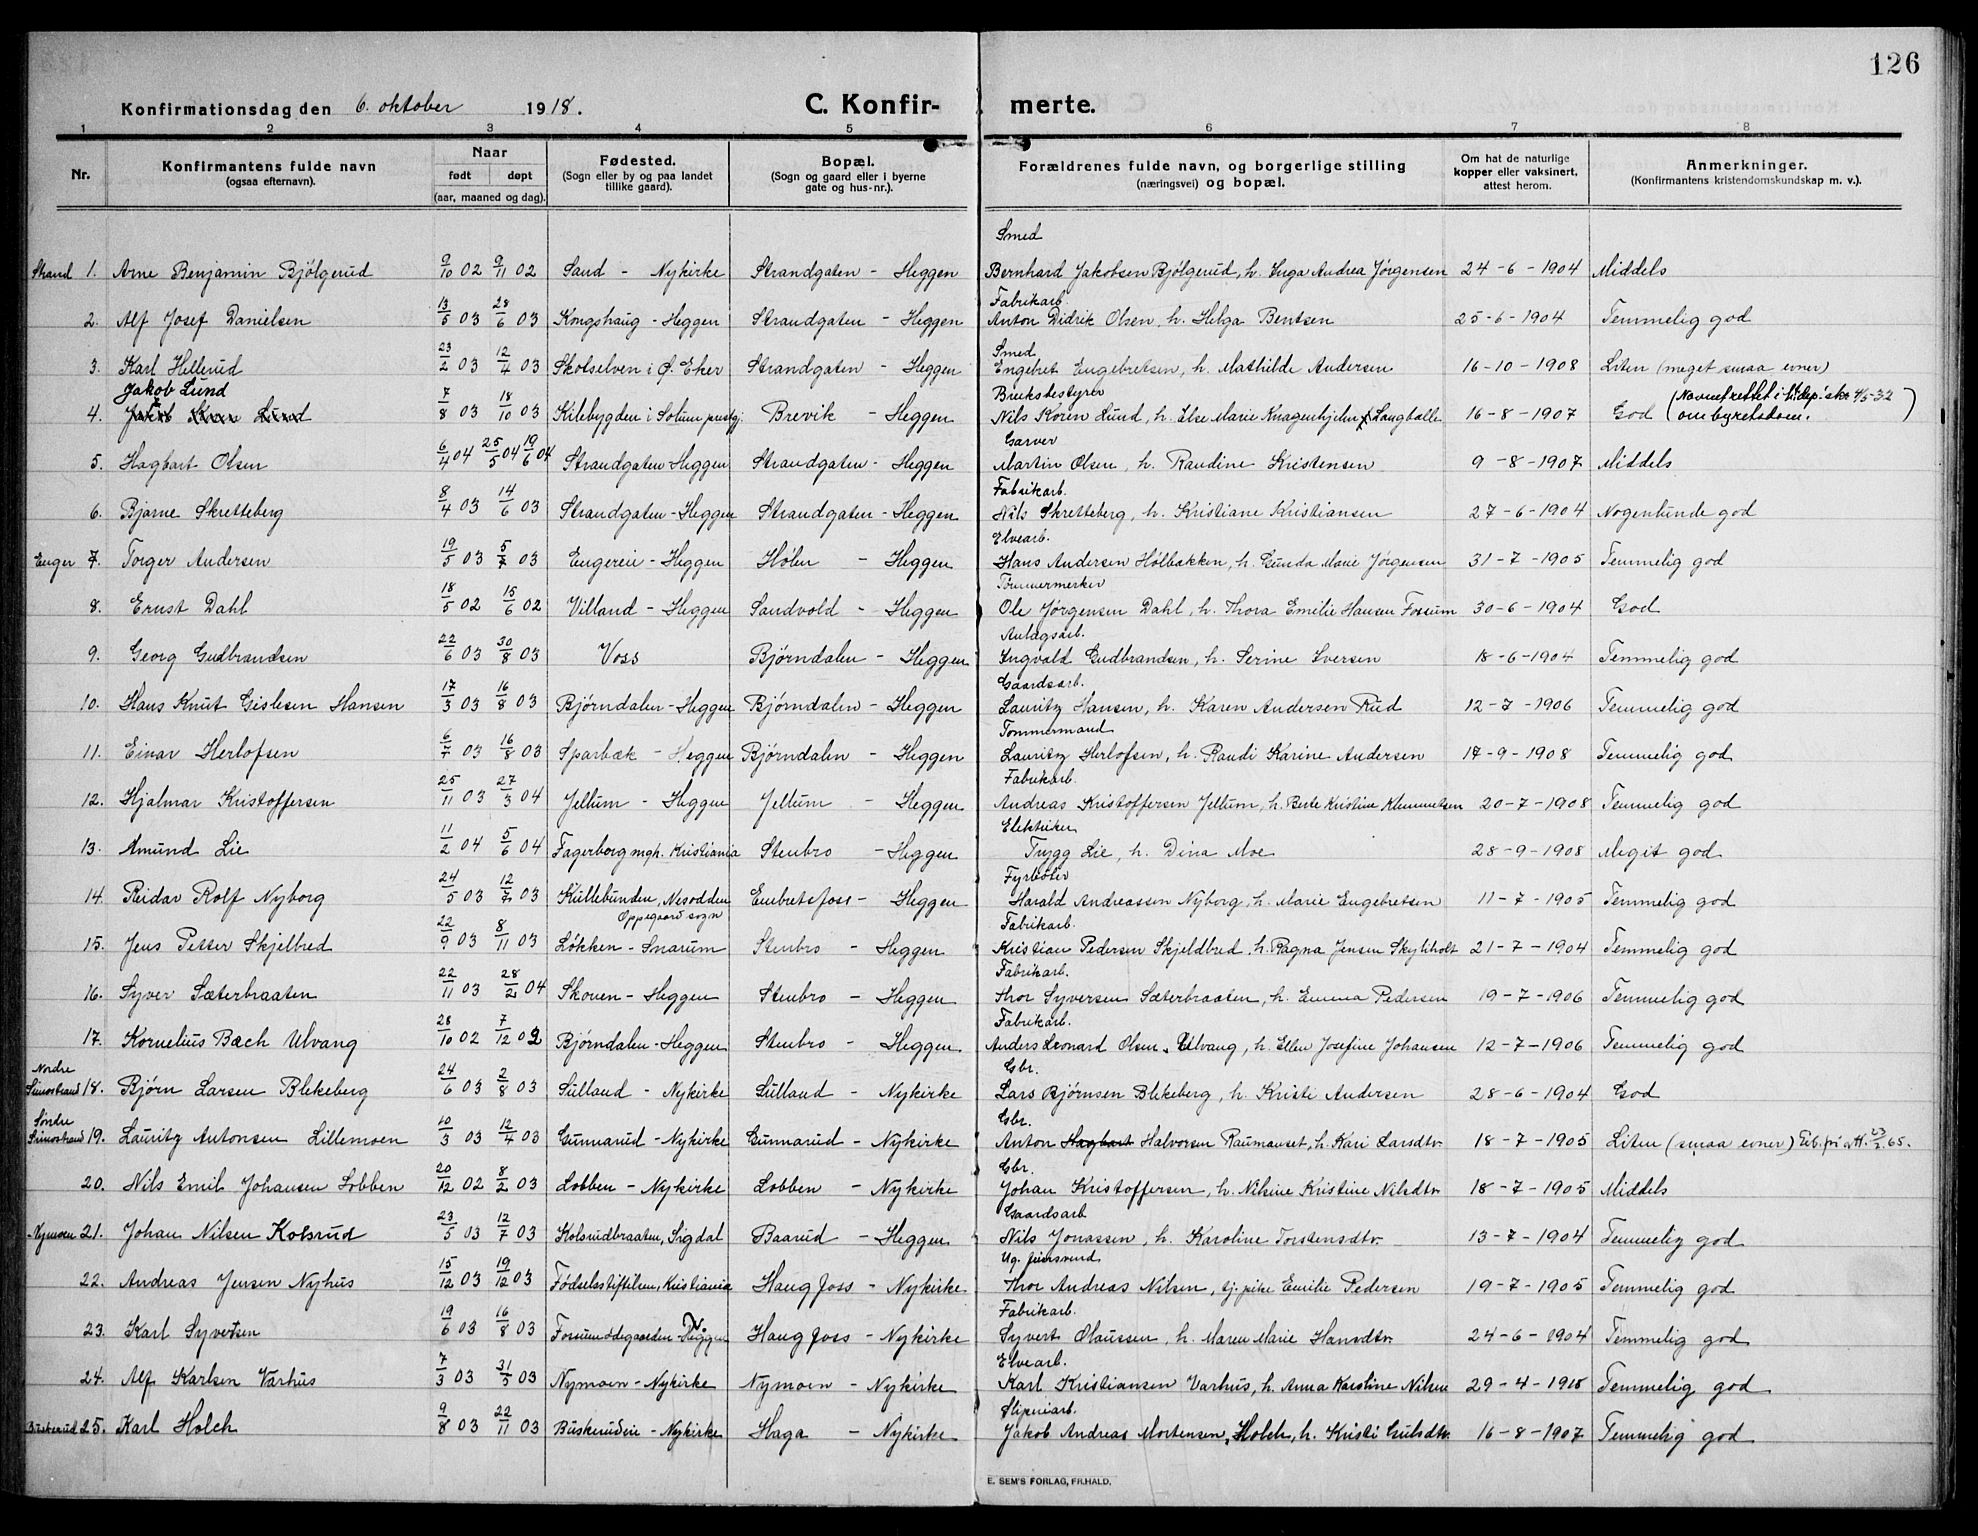 126
Konfirmationsdag den 6. oktober 1918. C. Konfir- merte.
1 2 3 4 5 6 7 8
Nr. Konfirmantens fulde navn (ogsaa efternavn). Naar født døpt (aar, maaned og dag). Fødested. (Sogn eller by og paa landet tillike gaard). Bopæl. (Sogn og gaard eller i byerne gate og hus-nr.). Forældrenes fulde navn, og borgerlige stilling (næringsvei) og bopæl. Om hat de naturlige kopper eller vaksinert, attest herom. Anmerkninger. (Konfirmantens kristendomskundskap m. v.).
Smed
Strand 1. Arne Benjamin Bjølgerud 9/10 02 9/11 02 Sand - Nykirke Strandgaten - Heggen Bernhard Jakobsen Bjølgerud, h. Inga Andrea Jørgensen 24-6-1904 Middels
Fabrikarb.
2. Alf Josef Danielsen 13/5 03 28/6 03 Kongshaug - Heggen Strandgaten - Heggen Anton Didrik Olsen, h. Helga Bentsen 25-6-1904 Temmelig god
Smed
3. Karl Hellerud 23/2 03 12/4 03 Skotselven i Ø. Eker Strandgaten - Heggen Engebret Engebretsen, h. Mathilde Andersen 16-10-1908 Liten (meget smaa evner)
Jakob Lund Bruksbestyrer (Navnet rettet i h. dep. skr. 4/5-32
4. Jakob Lund 7/8 03 18/10 03 Kilebygden i Solum prestgj. Brevik - Heggen Nils Koren Lund, h. Else Marie Knagenhjelm Langballe 16-8-1907 God om byretsdom.)
Garver
5. Hagbart Olsen 6/4 04 25/5 04 19/6 04 Strandgaten - Heggen Strandgaten - Heggen Martin Olsen, h. Randine Kristensen 9-8-1907 Middels
Fabrikarb.
6. Bjarne Skretteberg 8/4 03 14/6 03 Strandgaten - Heggen Strandgaten - Heggen Nils Skretteberg, h. Kristiane Kristiansen 27-6-1904 Nogenlunde god
Elvearb.
Enger 7. Torger Andersen 19/5 03 5/7 03 Engereie - Heggen Hølen - Heggen Hans Andersen Holbakken, h. Gunda Marie Jørgensen 31-7-1905 Temmelig god
Tømmermerker
8. Ernst Dahl 18/5 02 15/6 02 Villand - Heggen Sandvold - Heggen Ole Jørgensen Dahl, h. Thora Emilie Hansen Fossum 30-6-1904 God
Anlægsarb.
9. Georg Gudbrandsen 22/6 03 30/8 03 Voss Bjørndalen - Heggen Ingvald Gudbrandsen, h. Serine Iversen 18-6-1904 Temmelig god
Gaardsarb.
10. Hans Knut Gislesen Hansen 17/3 03 16/8 03 Bjørndalen - Heggen Bjørndalen - Heggen Lauritz Hansen, h. Karen Andersen Rud 12-7-1906 Temmelig god
Tømmermand
11. Einar Herlofsen 6/7 03 16/8 03 Sparbæk - Heggen Bjørndalen - Heggen Lauritz Herlofsen, h. Randi Karine Andersen 17-9-1908 Temmelig god
Fabrikarb.
12. Hjalmar Kristoffersen 25/11 03 27/3 04 Jellum - Heggen Jellum - Heggen Andreas Kristoffersen Jellum, h. Berte Kristine Klemmetsen 20-7-1908 Temmelig god
Elektriker
13. Amund Lie 11/2 04 5/6 04 Fagerborg mgh. Kristiania Stenbro - Heggen Trygg Lie, h. Dina Moe 28-9-1908 Meget god
Fyrbøter
14. Reidar Rolf Nyborg 24/5 03 12/7 03 Kullebunden, Nesodden Embretsfoss - Heggen Harald Andreassen Nyborg, h. Marie Engebretsen 11-7-1905 Temmelig god
Oppegaard sogn Fabrikarb.
15. Jens Petter Skjelbred 22/9 03 8/11 03 Løkken - Snarum Stenbro - Heggen Kristian Pedersen Skjeldbred, h. Ragna Jensen Skyliholt 21-7-1904 Temmelig god
Fabrikarb.
16. Syver Sæterbraaten 22/11 03 28/2 04 Skouen - Heggen Stenbro - Heggen Thor Syversen Sæterbraaten, h. Emma Pedersen 19-7-1906 Temmelig god
Fabrikarb.
17. Kornelius Bach Ulvang 28/10 02 7/12 02 Bjørndalen - Heggen Stenbro - Heggen Anders Leonard Olsen Ulvang, h. Ellen Josefine Johansen 12-7-1906 Temmelig god
Nordre Gbr.
Simostrand 18. Bjørn Larsen Blekeberg 24/6 03 2/8 03 Sulland - Nykirke Sulland - Nykirke Lars Bjørnsen Blikeberg, h. Kristi Andersen 28-6-1904 God
Søndre Gbr.
Simostrand 19. Lauritz Antonsen Lillemoen 10/3 03 12/4 03 Gunnarud - Nykirke Gunnarud - Nykirke Anton Hagbart Halvorsen Raumanset, h. Kari Larsdtr. 18-7-1905 Liten (smaa evner) 23/2 65.
Gbr.
20. Nils Emil Johansen Lobben 20/12 02 8/2 03 Lobben - Nykirke Lobben - Nykirke Johan Kristoffersen, h. Nilsine Kristine Nilsdtr. 18-7-1905 Middels
Gaardsarb
Nymoen 21. Johan Nilsen Kolsrud 23/5 03 12/7 03 Kolsrudbraaten, Sigdal Baarud - Heggen Nils Jonassen, h. Karoline Torstensdtr. 13-7-1904 Temmelig god
Ug. jernsmed
22. Andreas Jensen Nyhus 15/12 03 19/12 03 Fødselsstiftelsen, Kristiania Haugfoss - Nykirke Thor Andreas Nilsen, tj.pike Emilie Pedersen 19-7-1905 Temmelig god
Fabrikarb.
23. Karl Syvertsen 19/6 03 16/8 03 Fossumødegaarden - Heggen Haugfoss - Nykirke Syvert Olaussen, h. Maren Marie Hansdtr. 24-6-1904 Temmelig god
Elvearb.
24. Alf Karlsen Varhus 7/3 03 31/5 03 Nymoen - Nykirke Nymoen - Nykirke Karl Kristiansen Varhus, h. Anna Karoline Nilsen 29-4-1918 Temmelig god
Sliperiarb.
Buskerud 25. Karl Holch 9/8 03 22/11 03 Buskerudeie - Nykirke Haga - Nykirke Jakob Andreas Mortensen Holch, h. Kristi Gulsdtr. 16-8-1907 Temmelig god
E. SEM'S FORLAG, FR.HALD.